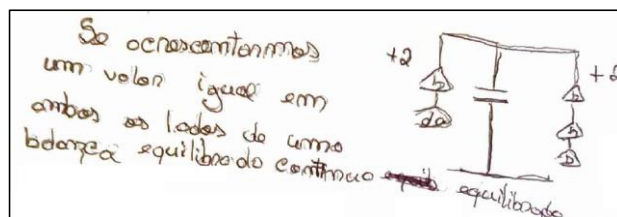 Se acrescentarmos
um valor igual em
ambos os lados de uma
balança equilibrada continua equilibrada
+2
b
da
+2
b
b
b